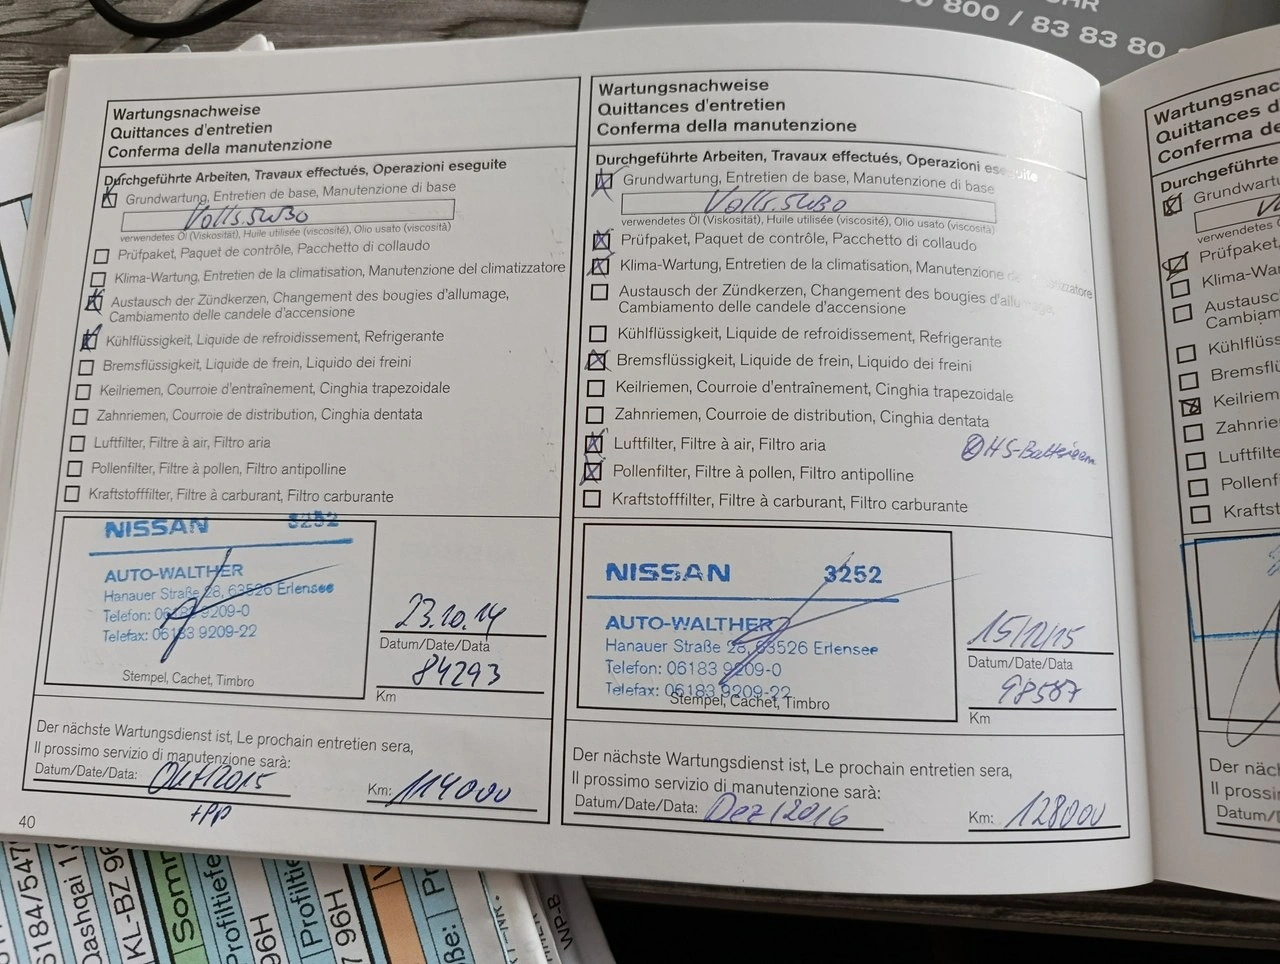 800 / 83 83 80
Wartungsnachweise
Quittances d'entretien
Conferma della manutenzione
Durchgeführte Arbeiten, Travaux effectués, Operazioni eseguite
Grundwartung, Entretien de base, Manutenzione di base
Vollts. 5W30
verwendetes Öl (Viskosität), Huile utilisée (viscosité), Olio usato (viscosità)
Prüfpaket, Paquet de contrôle, Pacchetto di collaudo
Klima-Wartung, Entretien de la climatisation, Manutenzione del climatizzatore
Austausch der Zündkerzen, Changement des bougies d'allumage,
Cambiamento delle candele d'accensione
Kühlflüssigkeit, Liquide de refroidissement, Refrigerante
Bremsflüssigkeit, Liquide de frein, Liquido dei freini
Keilriemen, Courroie d'entraînement, Cinghia trapezoidale
Zahnriemen, Courroie de distribution, Cinghia dentata
Luftfilter, Filtre à air, Filtro aria
Pollenfilter, Filtre à pollen, Filtro antipolline
Kraftstofffilter, Filtre à carburant, Filtro carburante
NISSAN 3252
AUTO-WALTHER
Hanauer Straße 28, 63526 Erlensee
Telefon: 06183 9209-0
Telefax: 06183 9209-22
Stempel, Cachet, Timbro
23.10.14
Datum/Date/Data
84293
Km
Der nächste Wartungsdienst ist, Le prochain entretien sera,
Il prossimo servizio di manutenzione sarà:
Datum/Date/Data: Okt/2015 Km: 114000
+PP
40
Wartungsnachweise
Quittances d'entretien
Conferma della manutenzione
Durchgeführte Arbeiten, Travaux effectués, Operazioni eseguite
Grundwartung, Entretien de base, Manutenzione di base
Vollts. 5W30
verwendetes Öl (Viskosität), Huile utilisée (viscosité), Olio usato (viscosità)
Prüfpaket, Paquet de contrôle, Pacchetto di collaudo
Klima-Wartung, Entretien de la climatisation, Manutenzione
Austausch der Zündkerzen, Changement des bougies d'allumage,
Cambiamento delle candele d'accensione
Kühlflüssigkeit, Liquide de refroidissement, Refrigerante
Bremsflüssigkeit, Liquide de frein, Liquido dei freini
Keilriemen, Courroie d'entraînement, Cinghia trapezoidale
Zahnriemen, Courroie de distribution, Cinghia dentata
Luftfilter, Filtre à air, Filtro aria
HS-Batterien
Pollenfilter, Filtre à pollen, Filtro antipolline
Kraftstofffilter, Filtre à carburant, Filtro carburante
NISSAN 3252
AUTO-WALTHER
Hanauer Straße 28, 63526 Erlensee
Telefon: 06183 9209-0
Telefax: 06183 9209-22
Stempel, Cachet, Timbro
15/12/15
Datum/Date/Data
98587
Km
Der nächste Wartungsdienst ist, Le prochain entretien sera,
Il prossimo servizio di manutenzione sarà:
Datum/Date/Data: Dez/2016 Km: 128000
Wartungsnac
Quittances d
Conferma de
Durchgeführte
Grundwartu
verwendetes
Prüfpaket,
Klima-War
Austausc
Cambiam
Kühlflüss
Bremsflü
Keilriem
Zahnrie
Luftfilte
Pollenf
Krafts
Der näc
Il prossi
Datum/
6184/547
KL-BZ 96
Somm
Profiltiefe
96H
Profiltie
96H
WP-B